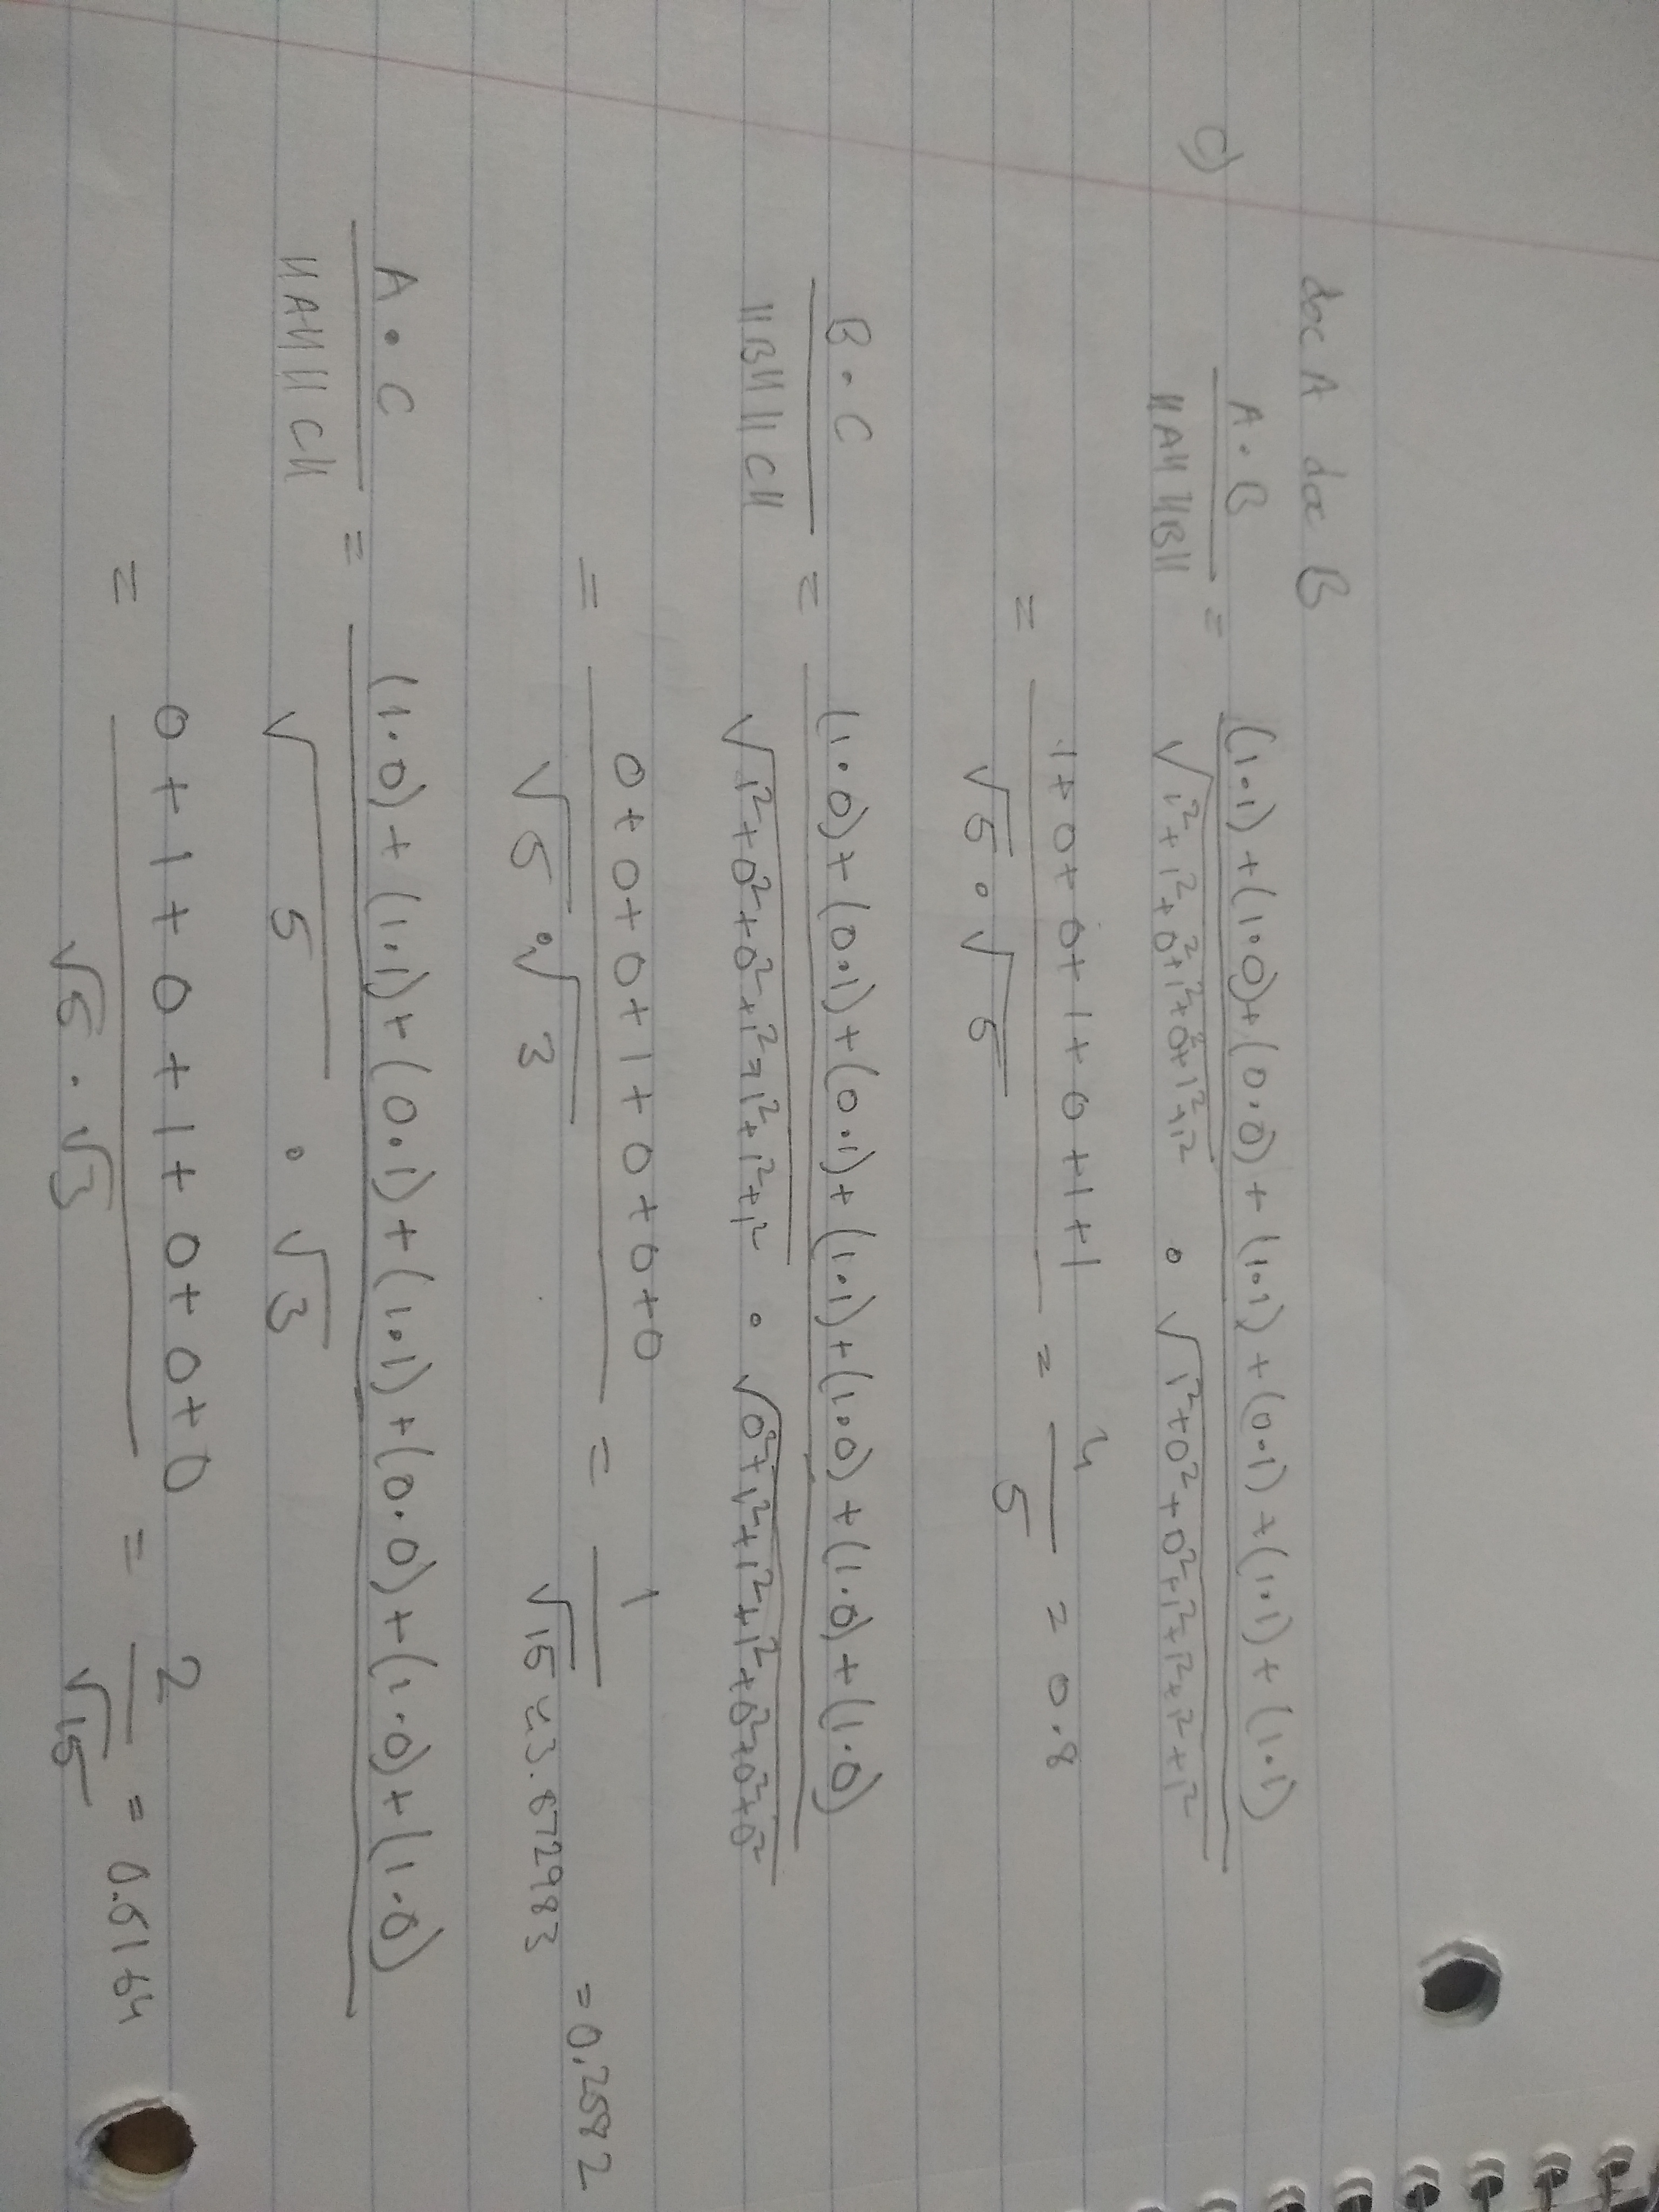 doc A doc B
c) A · B / ||A|| ||B|| = (1·1) + (1·0) + (0·0) + (1·1) + (0·1) + (1·1) + (1·1) / √1²+1²+0²+1²+0²+1²+1² · √1²+0²+0²+1²+1²+1²+1²
= 1+0+0+1+0+1+1 / √5 · √5 = 4/5 = 0.8
B · C / ||B|| ||C|| = (1·0) + (0·1) + (0·1) + (1·1) + (1·0) + (1·0) + (1·0) / √1²+0²+0²+1²+1²+1²+1² · √0²+1²+1²+1²+0²+0²+0²
= 0+0+0+1+0+0+0 / √5 · √3 = 1/√15 ≈ 3.872983 = 0.2582
A · C / ||A|| ||C|| = (1·0) + (1·1) + (0·1) + (1·1) + (0·0) + (1·0) + (1·0) / √5 · √3
= 0+1+0+1+0+0+0 / √5 · √3 = 2/√15 = 0.5164